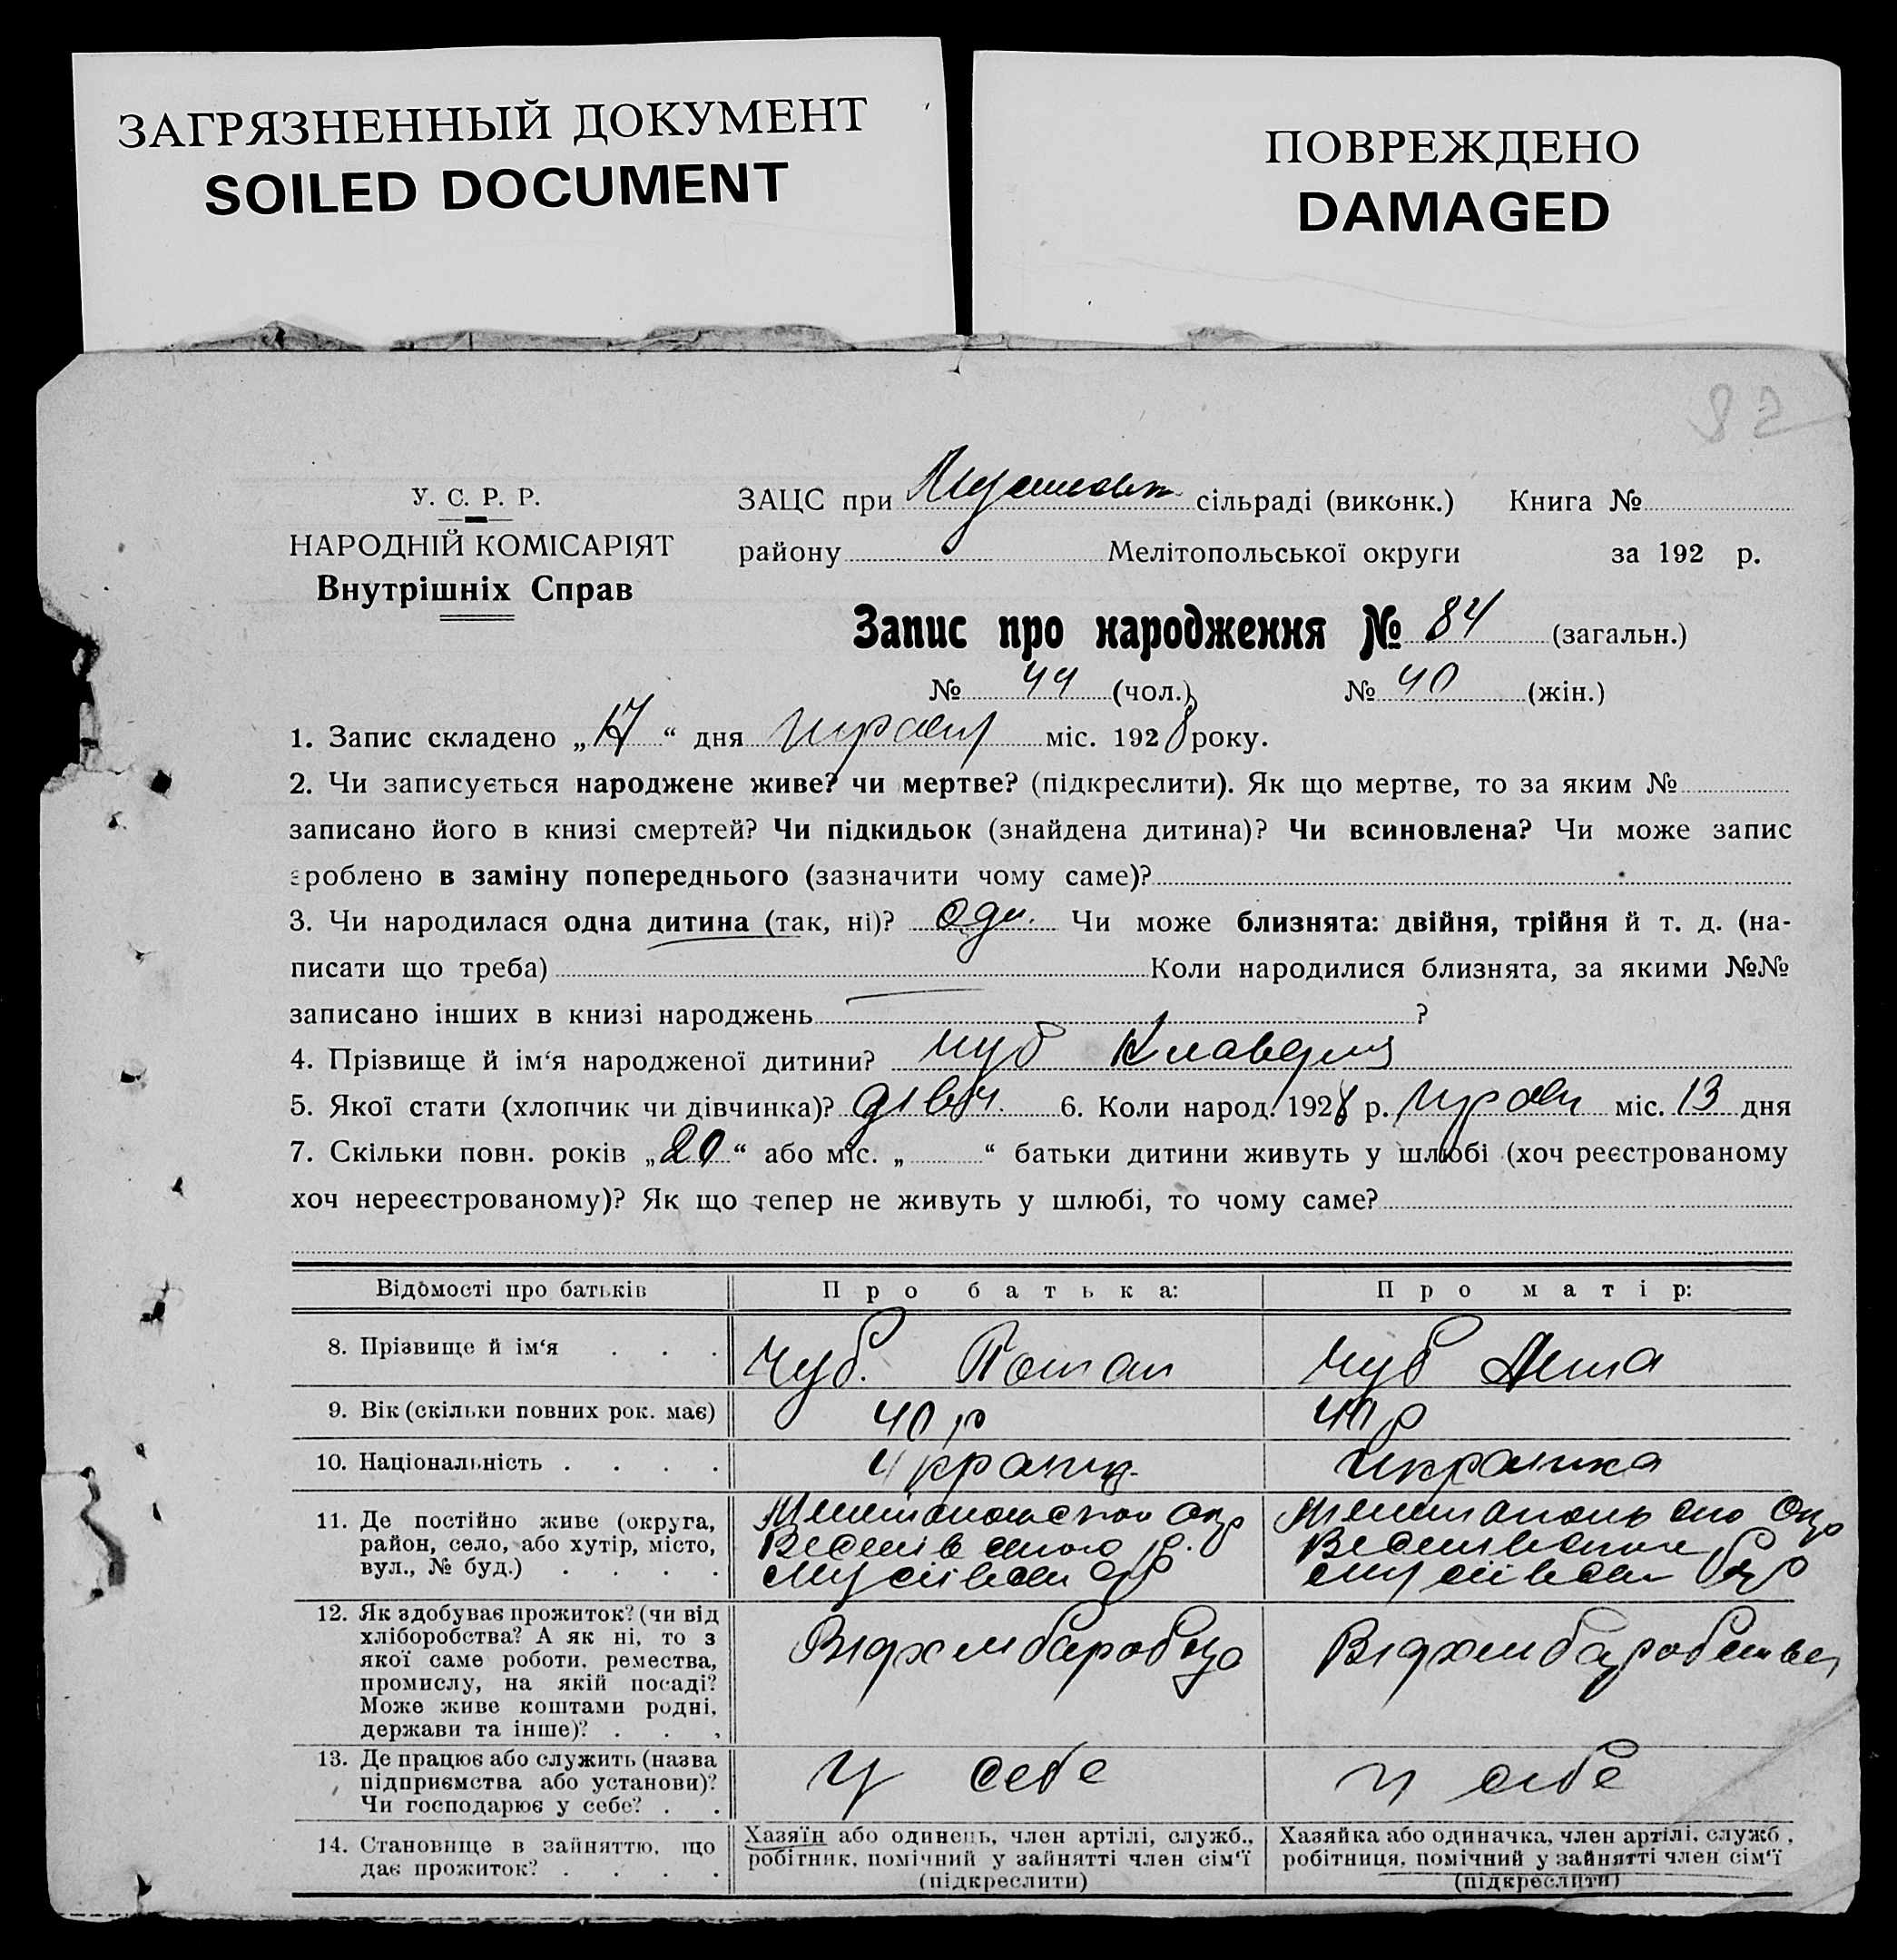 ЗАГРЯЗНЕННЫЙ ДОКУМЕНТ
SOILED DOCUMENT
ПОВРЕЖДЕНО
DAMAGED
82
У. С. Р. Р.
НАРОДНІЙ КОМІСАРІЯТ
Внутрішніх Справ
ЗАЦС при сільраді (виконк.) Книга №
району Мелітопольської округи за 192 р.
Запис про народження № 84 (загальн.)
№ 44 (чол.) № 40 (жін.)
1. Запис складено „17“ дня міс. 1928 року.
2. Чи записується народжене живе? чи мертве? (підкреслити). Як що мертве, то за яким №
записано його в книзі смертей? Чи підкидьок (знайдена дитина)? Чи всиновлена? Чи може запис
зроблено в заміну попереднього (зазначити чому саме)?
3. Чи народилася одна дитина (так, ні)? Одн. Чи може близнята: двійня, трійня й т. д. (на-
писати що треба) Коли народилися близнята, за якими №№
записано інших в книзі народжень ?
4. Прізвище й ім‘я народженої дитини? Чуб Клавдия
5. Якої стати (хлопчик чи дівчинка)? дівч. 6. Коли народ. 1928 р. міс. 13 дня
7. Скільки повн. років „20“ або міс. „ “ батьки дитини живуть у шлюбі (хоч реєстрованому
хоч нереєстрованому)? Як що тепер не живуть у шлюбі, то чому саме?
Відомості про батьків Про батька: Про матір:
8. Прізвище й ім‘я . . . Чуб. Потап Чуб Анна
9. Вік (скільки повних рок. має) 40 р 40 р
10. Національність . . . . Украинка
11. Де постійно живе (округа,
район, село, або хутір, місто,
вул., № буд.) . . . .
12. Як здобуває прожиток? (чи від
хліборобства? А як ні, то з
якої саме роботи, ремества,
промислу, на якій посаді?
Може живе коштами родні,
держави та інше)? . . .
13. Де працює або служить (назва
підприємства або установи)?
Чи господарює у себе? . .
У себе
у себе
14. Становище в зайняттю, що
дає прожиток? . . . .
Хазяїн або одинець, член артілі, служб.,
робітник, помічний у зайнятті член сім‘ї
(підкреслити)
Хазяйка або одиначка, член артілі, служб.,
робітниця, помічний у зайнятті член сім‘ї
(підкреслити)